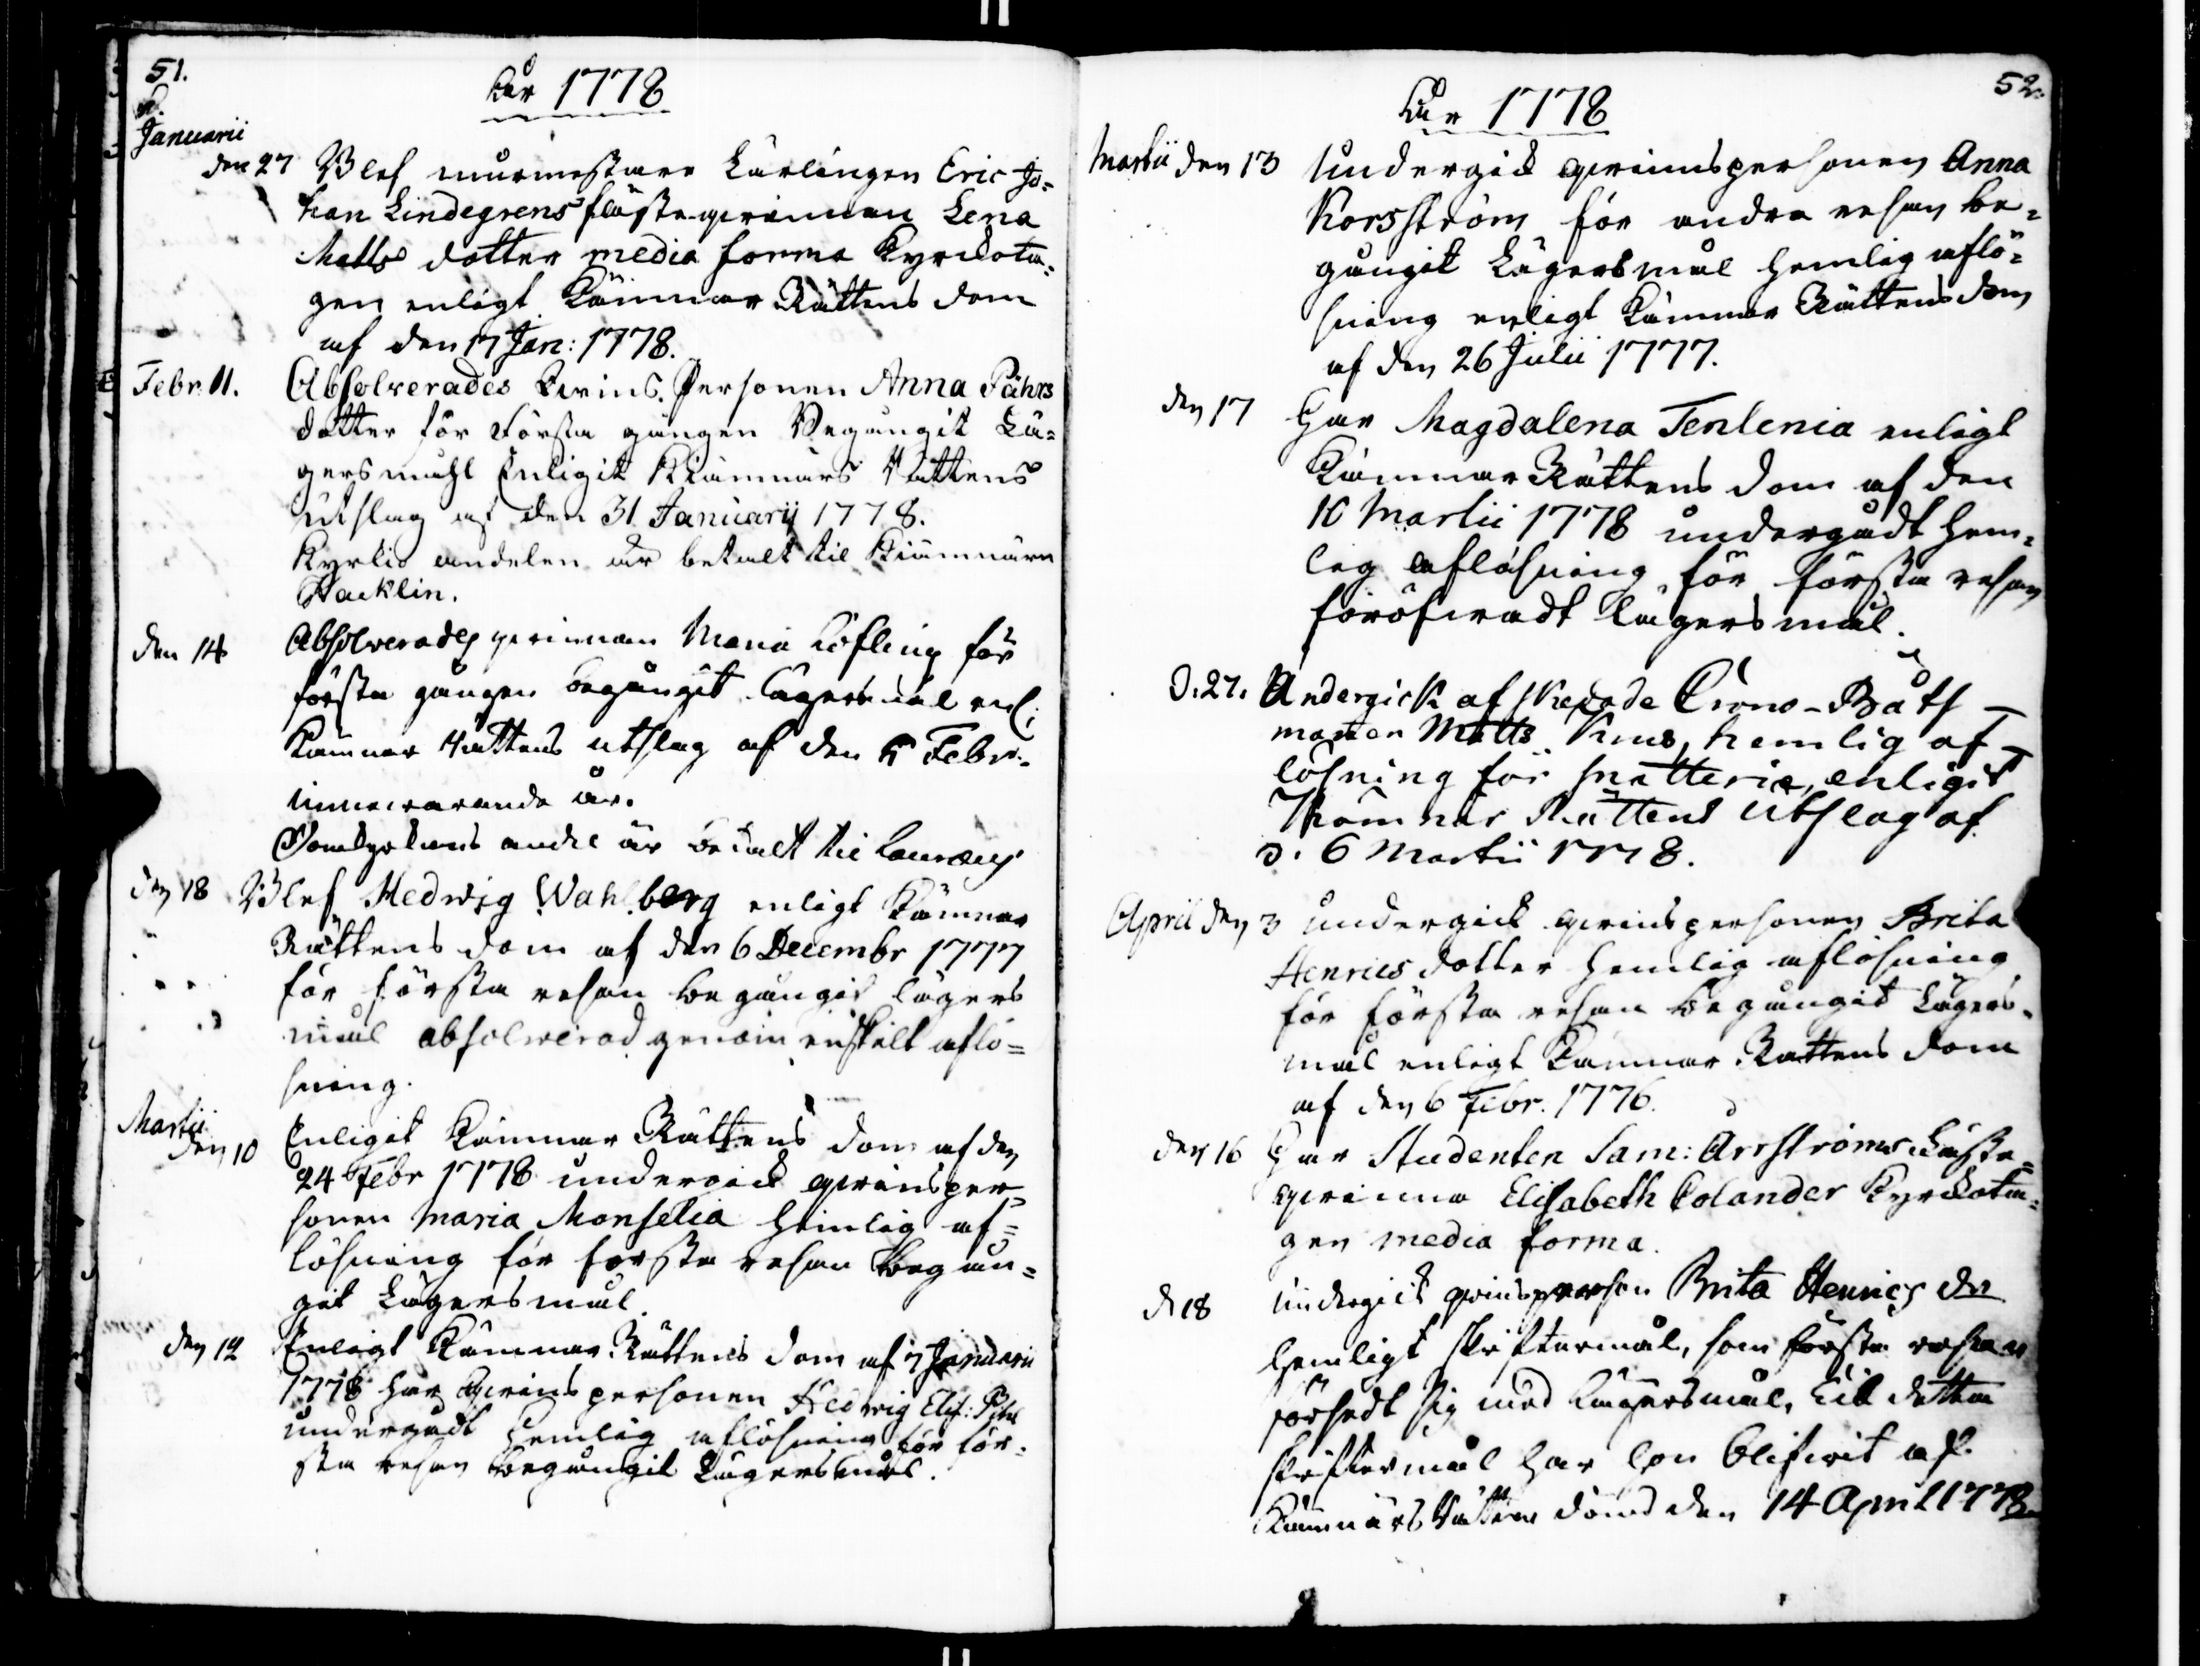 51.
Åår 1778
d.
Januarii
den 27 Blef murmestare Lärlingen Eric Jo=
han Lindegrens fästeqvinna Lena
Matts dotter media forma kyrckota=
gen enligt Kämnær Rättens dom
af den 17 Jan: 1778.
Febr. 11. Absolverades Qvins Personen Anna Påhrs
dotter för Första gången Begångit Lä=
gersmåhl Enligit Kiämnärs Rättens
utslag af den 31 Januarij 1778.
Kyrkio andelen är betalt til Kiämnären
Hacklin.
den 14 Absolverades qvinnan Maria Löfling för
första gången begångit lägersmål enl:
Kämnærs Rättens utslag af den 5 Febr.
innewarande år.
Domkyrkans andel är betalt til
den 18 Blef Hedwig Wahlberg enligt Kämnær
Rättens dom af den 6 Decembr 1777
för första resan begångit lägers
mål absolverad genom enskilt aflö=
sning.
Martii
den 10 Enligit Kämnær Rättens dom af den
24 Febr 1778 undergick qvinsper=
sonen Maria Monselia hemlig af=
lösning för första resan begån=
git Lägersmål.
den 12 Enligt Kämnær Rättens dom af 7 Januarii
1778 har Qvinspersonen Hedwig Elis:
undergådt hemlig aflösning för för=
sta resan begångit Lägersmål.
52.
Åår 1778
Martii den 13 Undergick qvinnspersonen Anna
Korsström för andra resan be=
gångit Lägersmål hemlig aflö=
sning enligt Kämnær Rättens dom
af den 26 Julii 1777.
den 17 Har Magdalena Tenlenia enligt
Kämnær Rättens dom af den
10 Martii 1778 undergådt hem=
lig aflösning för första resan
föröfwadt lägersmål.
D. 27. Undergick afskedade Crono-Båts
mannen Matts Knus, hemlig af
lösning för snatteri, enligit
Thämnär Rättens Utslag af
d. 6 Martii 1778.
April den 3 undergick qvinspersonen Brita
Henrics dotter hemlig aflösning
för första resan begångit Lägers=
mål enligt Kämnær Rättens dom
af den 6 Febr. 1776.
den 16 Har Studenten Sam: Arrströms Fäste=
qvinna Elisabeth Polander kyrckota=
gen media forma.
d 18 Undergick qvinsperson Brita Henrics dr
hemligt skriftermål, som första resan
försedt sig med Lägersmål, til detta
skriftermål har hon blifwit af
Kämnärs Rätten dömd den 14 April 1778.